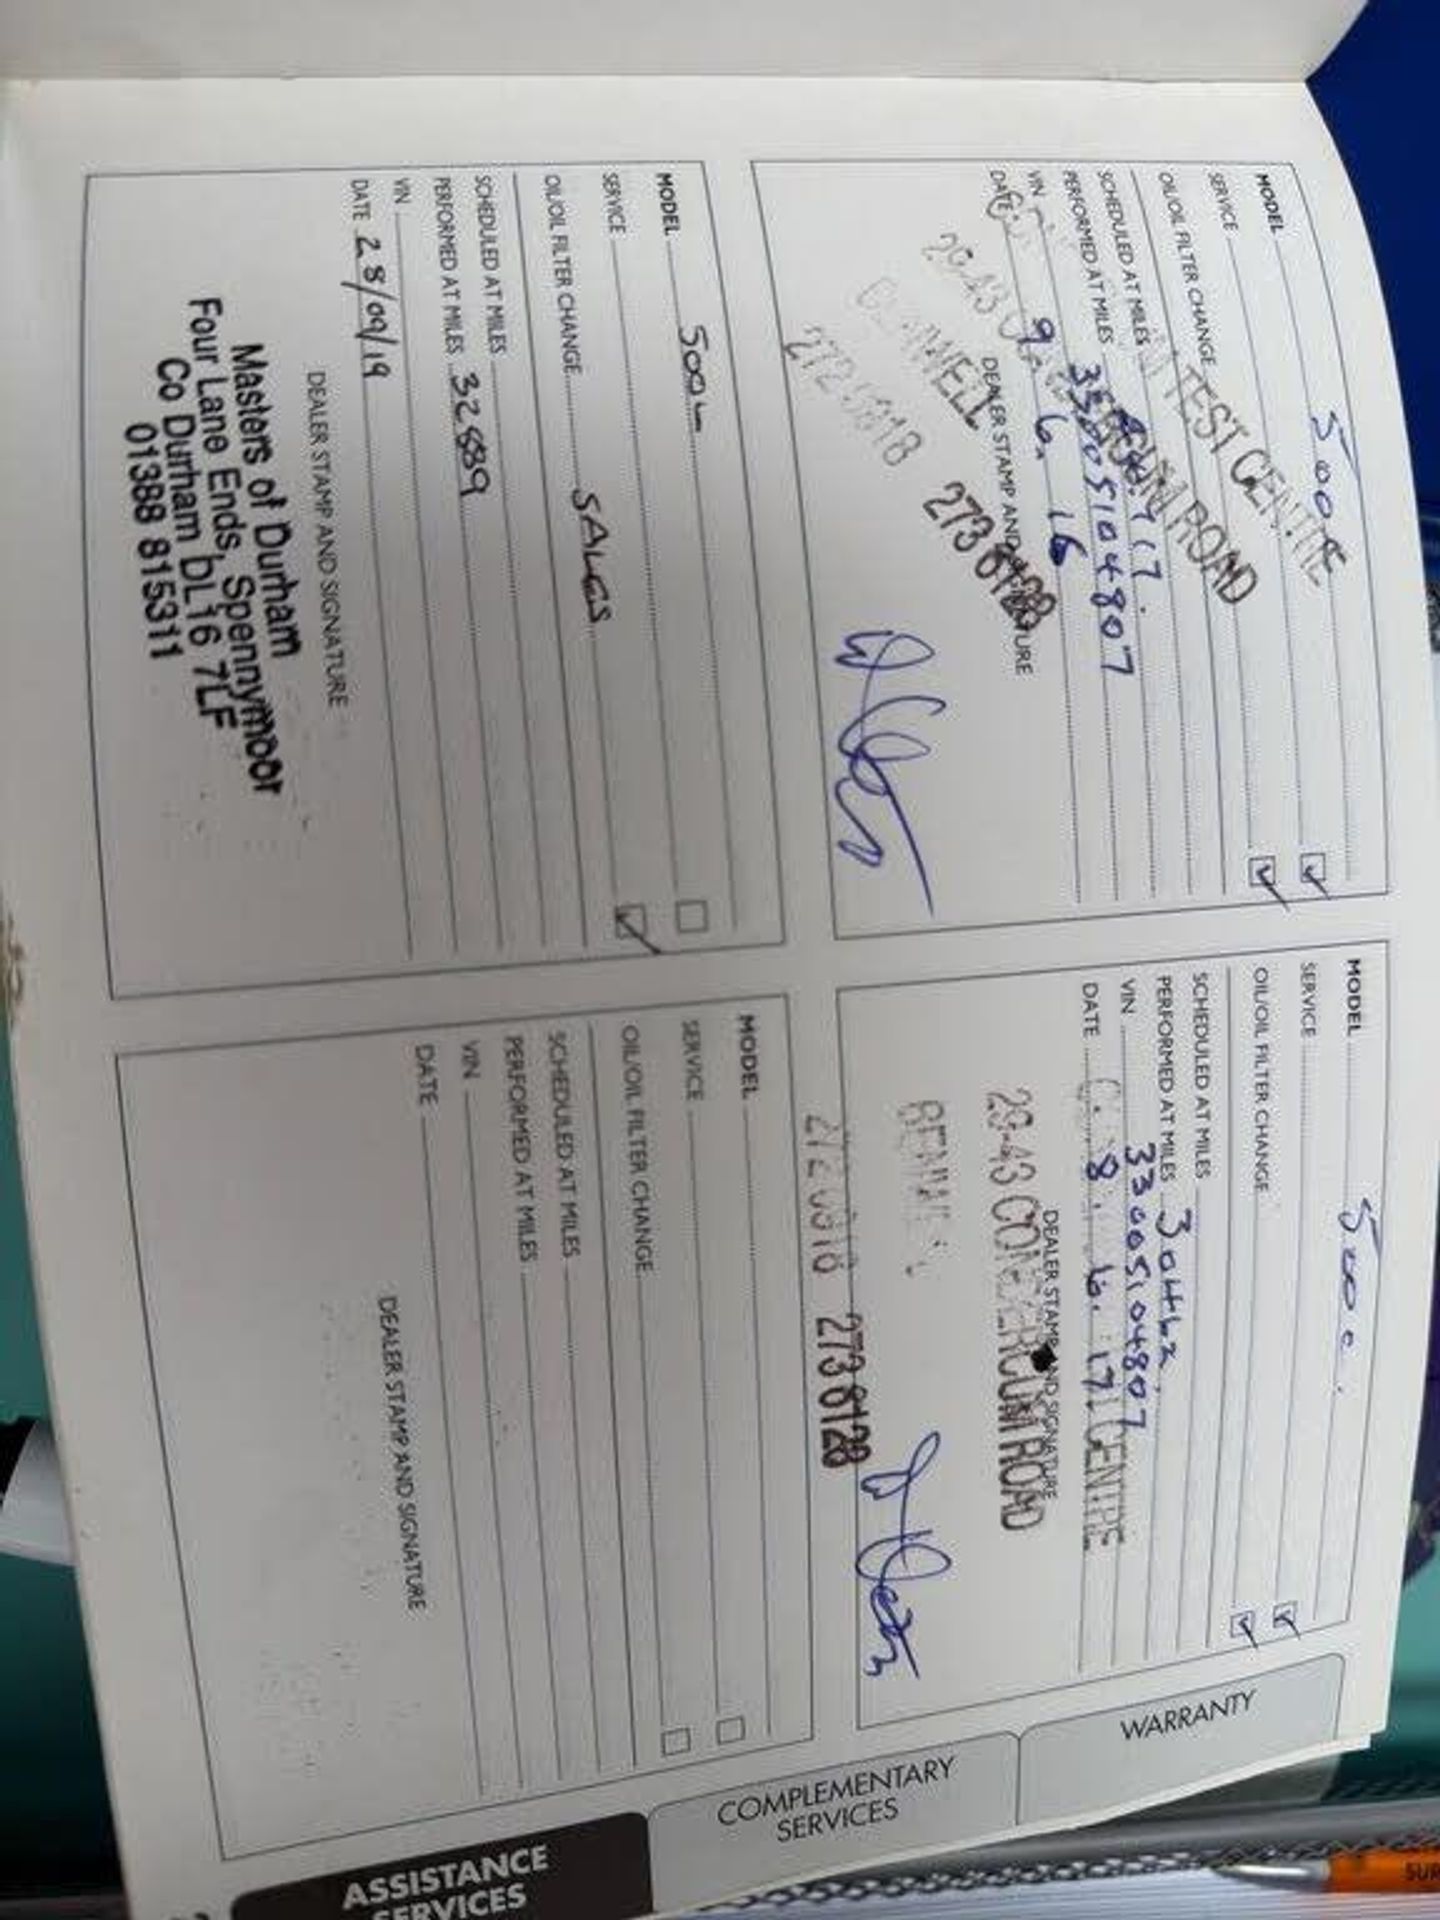 MODEL 500c
SERVICE
OIL/OIL FILTER CHANGE
SCHEDULED AT MILES
PERFORMED AT MILES
VIN 33005104807
DATE 9.6.16
TEST CENTRE
ROAD
DEALER STAMP AND SIGNATURE
2738128
MODEL 500c.
SERVICE
OIL/OIL FILTER CHANGE
SCHEDULED AT MILES
PERFORMED AT MILES 30462
VIN 33005104807
DATE 8.6.17. CENTRE
DEALER STAMP AND SIGNATURE
29-43 CONDERCUM ROAD
2738128
MODEL 500L
SERVICE
OIL/OIL FILTER CHANGE SALES
SCHEDULED AT MILES
PERFORMED AT MILES 32889
VIN
DATE 28/09/19
DEALER STAMP AND SIGNATURE
Masters of Durham
Four Lane Ends, Spennymoor
Co Durham DL16 7LF
01388 815311
MODEL
SERVICE
OIL/OIL FILTER CHANGE
SCHEDULED AT MILES
PERFORMED AT MILES
VIN
DATE
DEALER STAMP AND SIGNATURE
WARRANTY
COMPLEMENTARY
SERVICES
ASSISTANCE
SERVICES
SUR